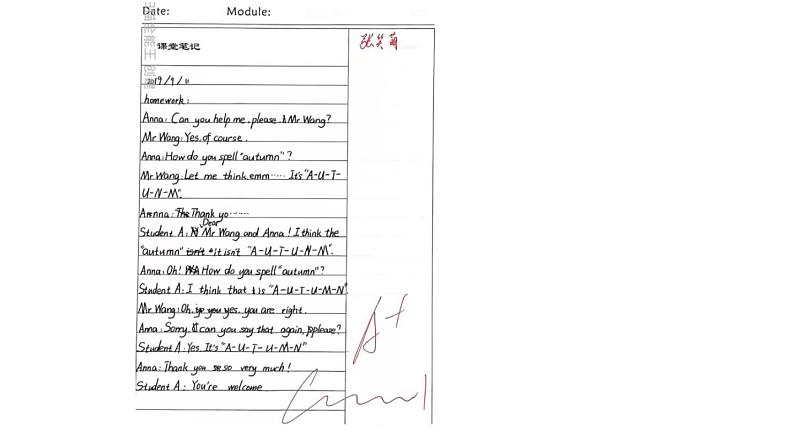 Date: Module:
课堂笔记
张笑萌
2019/9/11
homework:
Anna: Can you help me, please, Mr Wang?
Mr Wang: Yes, of course.
Anna: How do you spell "autumn"?
Mr Wang: Let me think, emm...... It's "A-U-T-
U-N-M".
Anna: Thank yo......
Student A: Dear Mr Wang and Anna! I think the
"autumn" isn't it isn't "A-U-T-U-N-M".
Anna: Oh! How do you spell "autumn"?
Student A: I think that is "A-U-T-U-M-N".
Mr Wang: Oh, yes, you are right.
Anna: Sorry, can you say that again, please?
Student A: Yes. It's "A-U-T-U-M-N"
Anna: Thank you so very much!
Student A: You're welcome.
A+